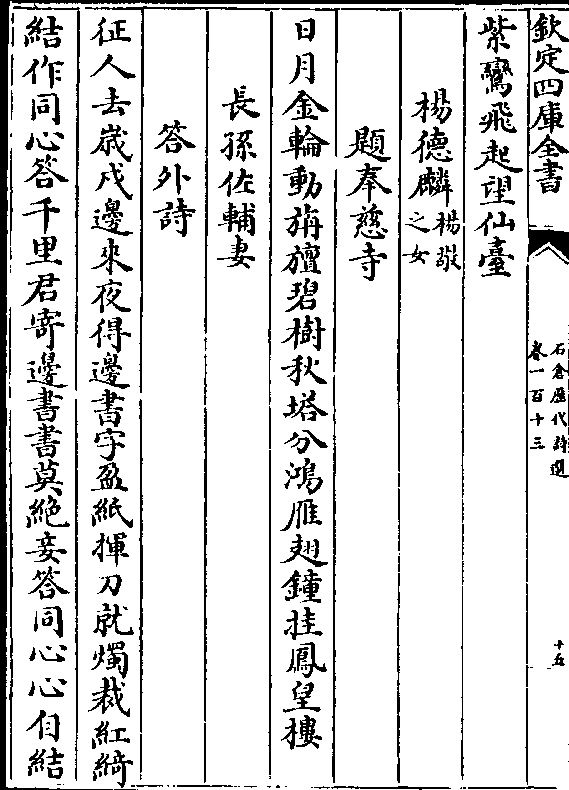 欽定四庫全書
石倉歷代詩選
卷一百十三
十五
紫鸞飛起望仙臺
楊德麟
楊敬
之女
題奉慈寺
日月金輪動旃檀碧樹秋塔分鴻雁翅鐘挂鳳皇樓
長孫佐輔妻
答外詩
征人去歲戍邊來夜得邊書字盈紙揮刀就燭裁紅綺
結作同心答千里君寄邊書書莫絶妾答同心心自結